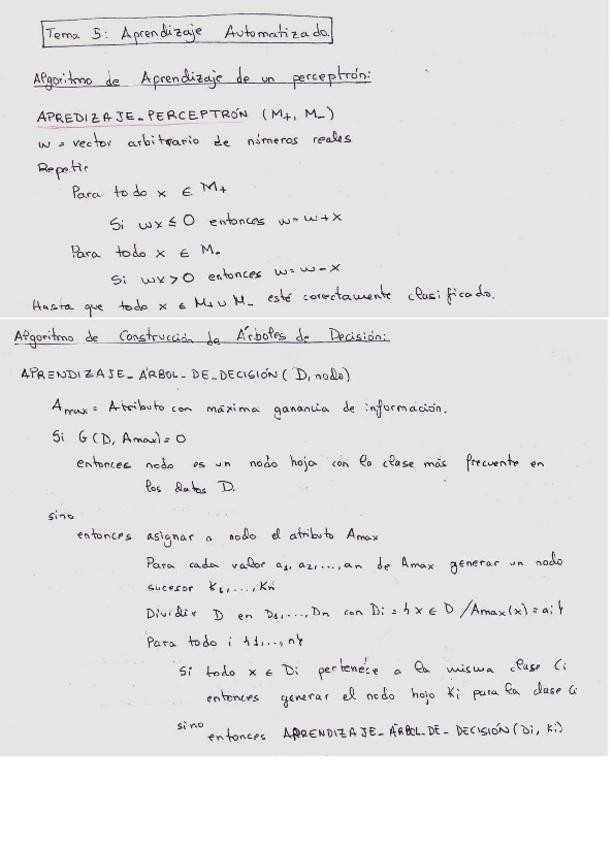 Tema 5: Aprendizaje Automatizado.
Algoritmo de Aprendizaje de un perceptrón:
APREDIZAJE_PERCEPTRÓN (M+, M-)
w = vector arbitrario de números reales
Repetir
Para todo x ∈ M+
Si wx ≤ 0 entonces w = w + x
Para todo x ∈ M-
Si wx > 0 entonces w = w - x
Hasta que todo x ∈ M+ ∪ M- esté correctamente clasificado.
Algoritmo de Construcción de Árboles de Decisión:
APRENDIZAJE_ÁRBOL_DE_DECISIÓN (D, nodo)
Amax = Atributo con máxima ganancia de información.
Si G(D, Amax) = 0
entonces nodo es un nodo hoja con la clase más frecuente en
los datos D.
sino
entonces asignar a nodo el atributo Amax
Para cada valor a1, a2, ..., an de Amax generar un nodo
sucesor K1, ..., Kn
Dividir D en D1, ..., Dn con Di = {x ∈ D / Amax(x) = ai}
Para todo i {1, ..., n}
Si todo x ∈ Di pertenece a la misma clase Ci
entonces generar el nodo hojo Ki para la clase Ci
sino
entonces APRENDIZAJE_ÁRBOL_DE_DECISIÓN (Di, Ki)